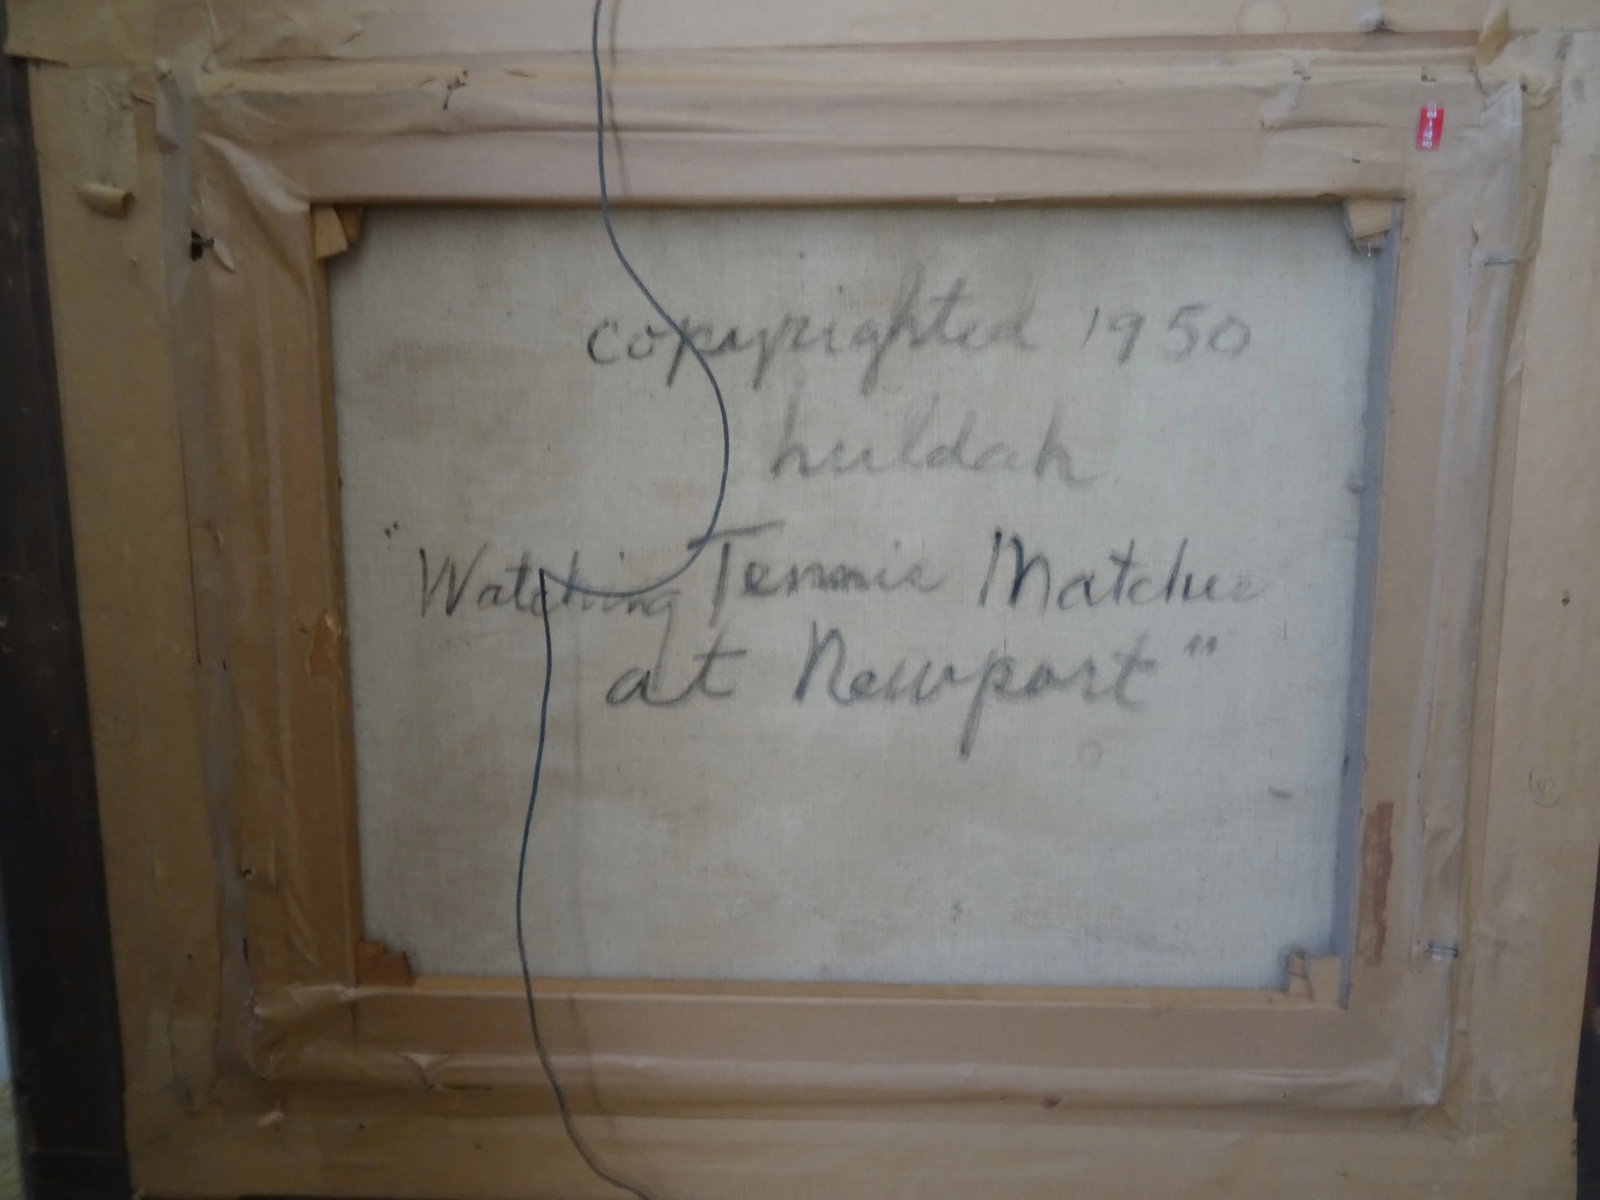 copyrighted 1950
huldah
"Watching Tennis Matches
at Newport"